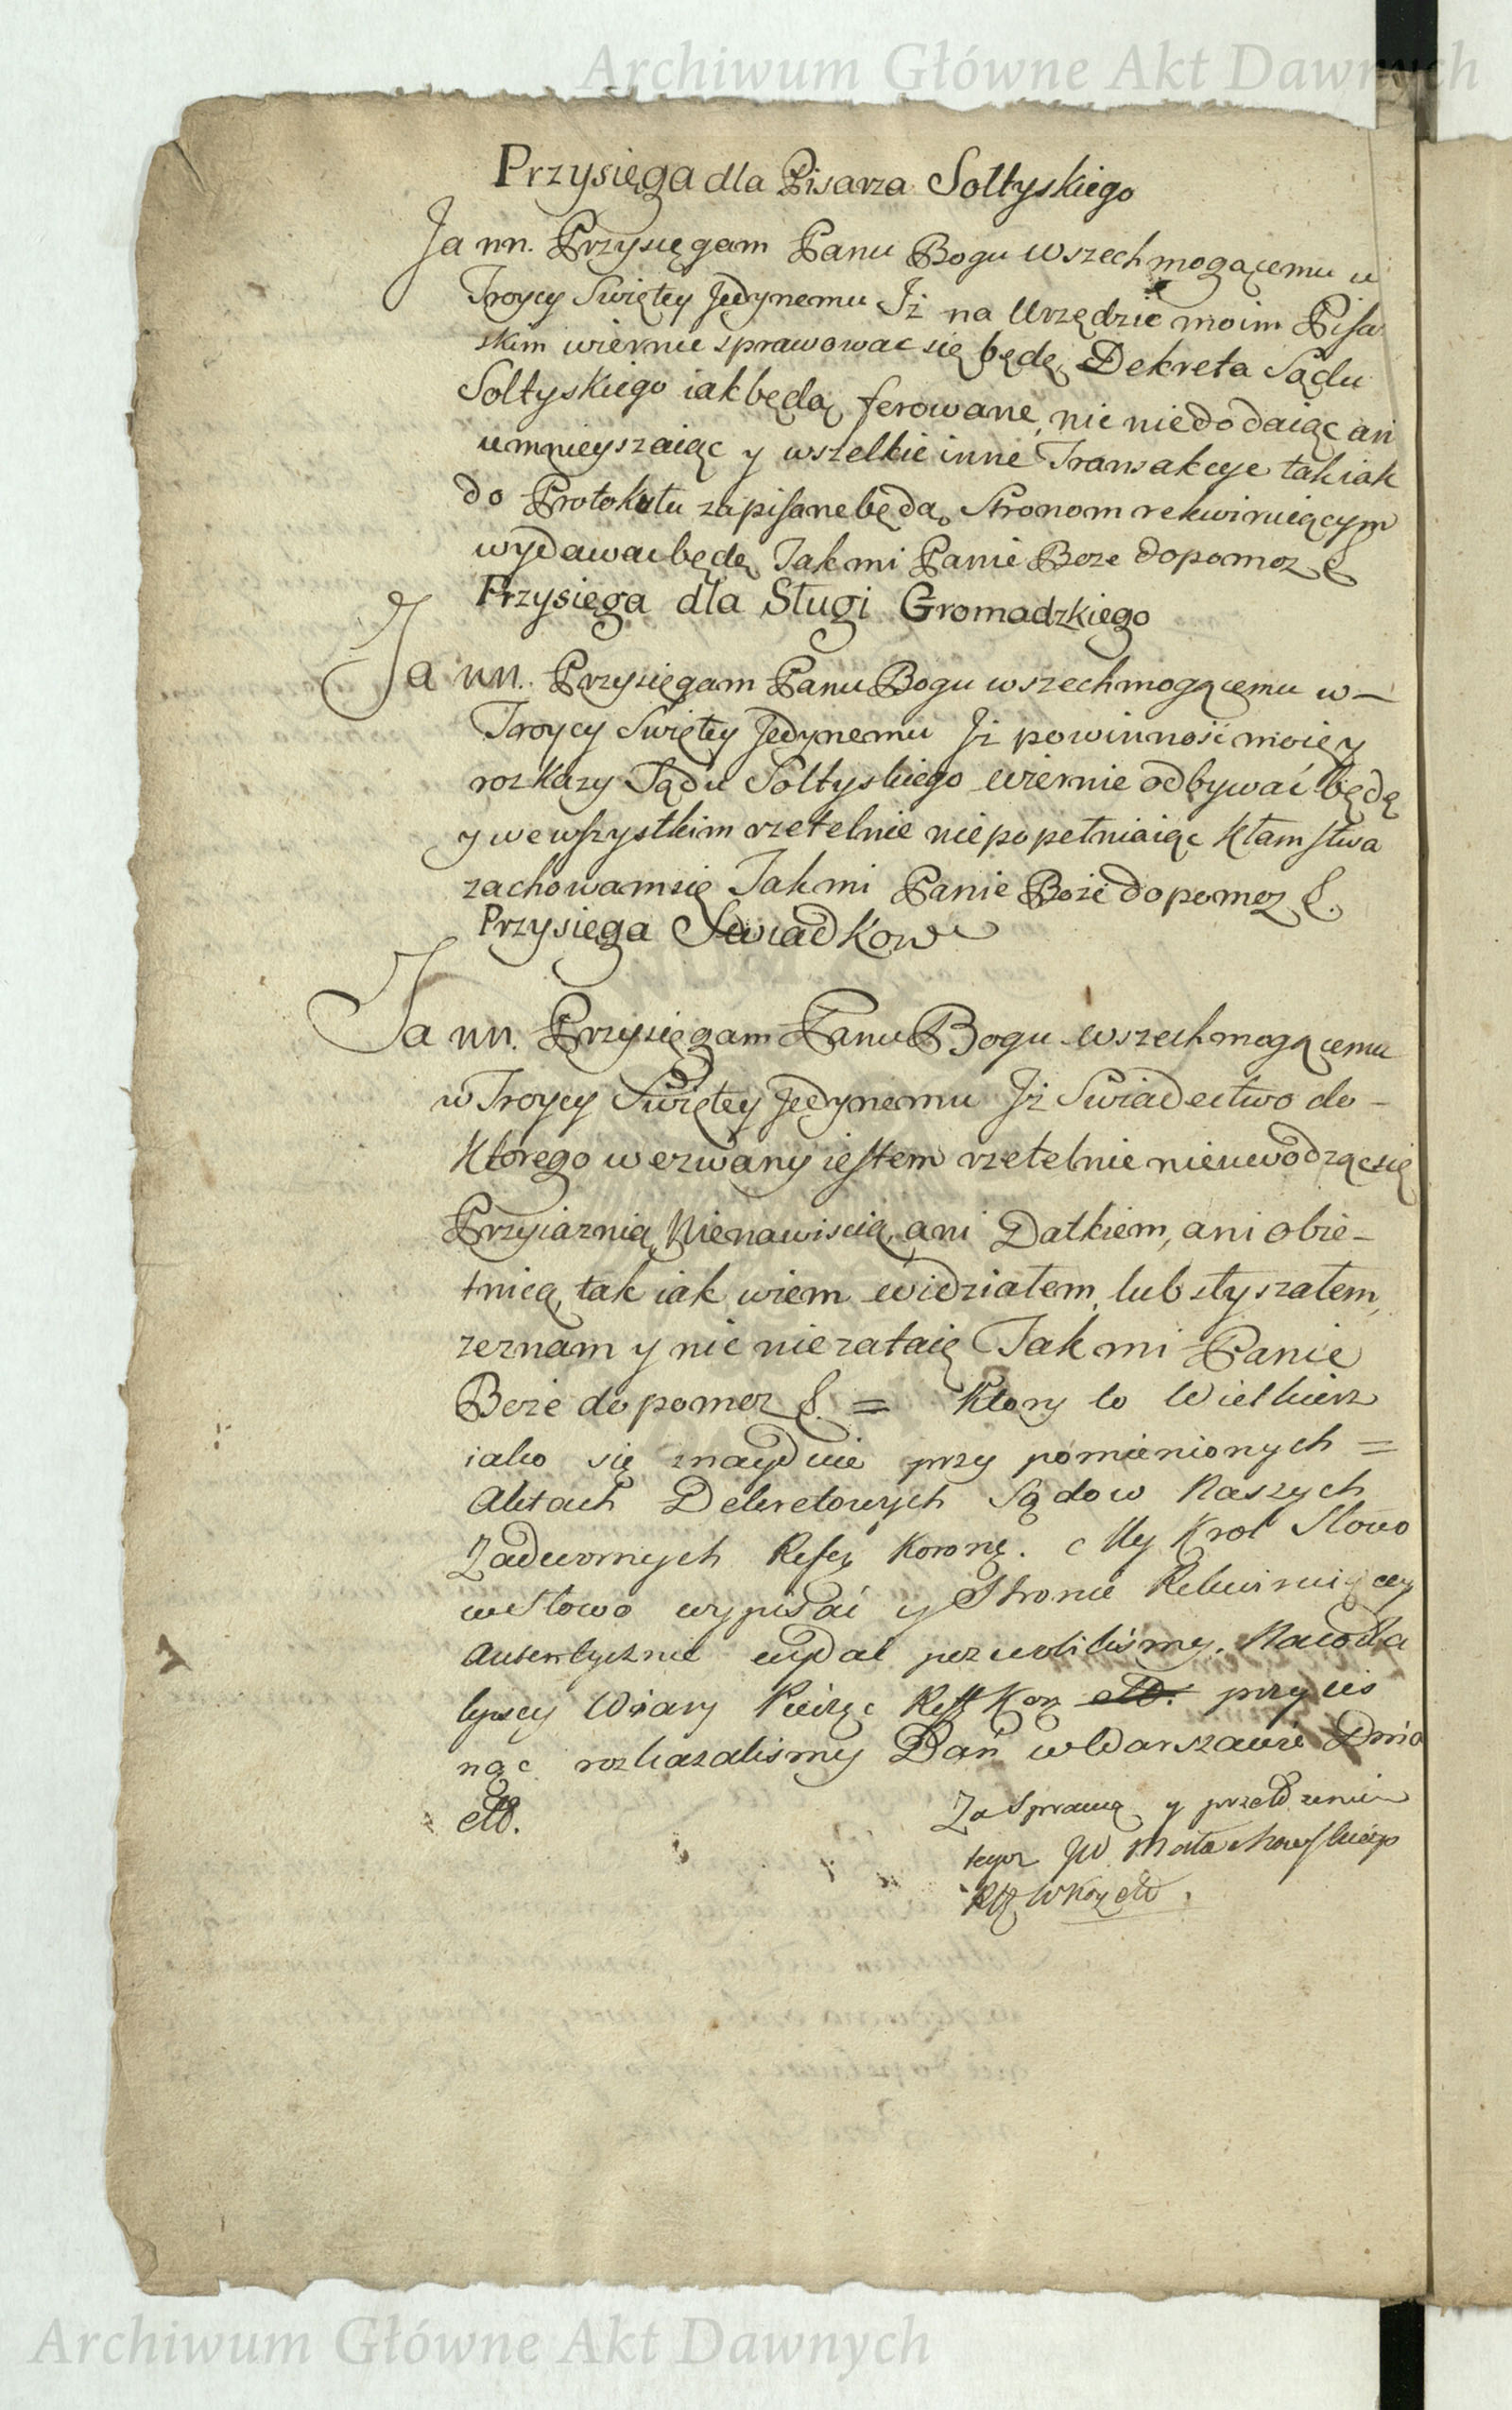 Archiwum Główne Akt Dawnych
Przysięga dla Pisarza Sołtyskiego
Ja nn. Przysięgam Panu Bogu wszechmogącemu w
Troycy Swiętey Jedynemu Iż na Urzędzie moim Pisa
skim wiernie sprawowac się będę, Dekreta Sądu
Sołtyskiego iak będą ferowane, nic nie dodaiąc ani
umnieyszaiąc y wszelkie inne Transakcye tak iak
do Protokułu zapisane będą, Stronom rekwiruiącym
wydawac będę Tak mi Panie Boze dopomoz &
Przysięga dla Sługi Gromadzkiego
Ja nn. Przysięgam Panu Bogu wszechmogącemu w –
Troycy Swiętey Jedynemu Iż powinność moię y
rozkazy Sądu Sołtyskiego wiernie odbywać będę
y we wszystkim rzetelnie niepopełniaiąc kłamstwa
zachowam się Tak mi Panie Boże dopomoz &.
Przysięga Swiadkow
Ja nn. Przysięgam Panu Bogu wszechmogącemu
w Troycy Swiętey Jedynemu Iż Swiadectwo do –
ktorego wezwany iestem rzetelnie nieuwodząc się
Przyiaznią, Nienawiscią, ani Datkiem, ani obie –
tnicą, tak iak wiem widziałem, lub słyszałem,
zeznam y nic niezataię Tak mi Panie
Boże dopomoz &. = Ktory to Wielkierz
iako się znayduie przy pomienionych =
Aktach Dekretowych Sądow Naszych
Zadwornych Koronę. My Krol Słowo
w Słowo wypisać y Stronie Rekwiruiącey
Autentycznie wydac pozwoliliśmy. Na co dla
lepszey Wiary Pieczęc Kor etc. przycis
nąc rozkazalismy Dań w Warszawie Dnia
etc.
Za Sprawą y przełożeniem
tegoz JW. Małachowskiego
W Kor etc.
Archiwum Główne Akt Dawnych